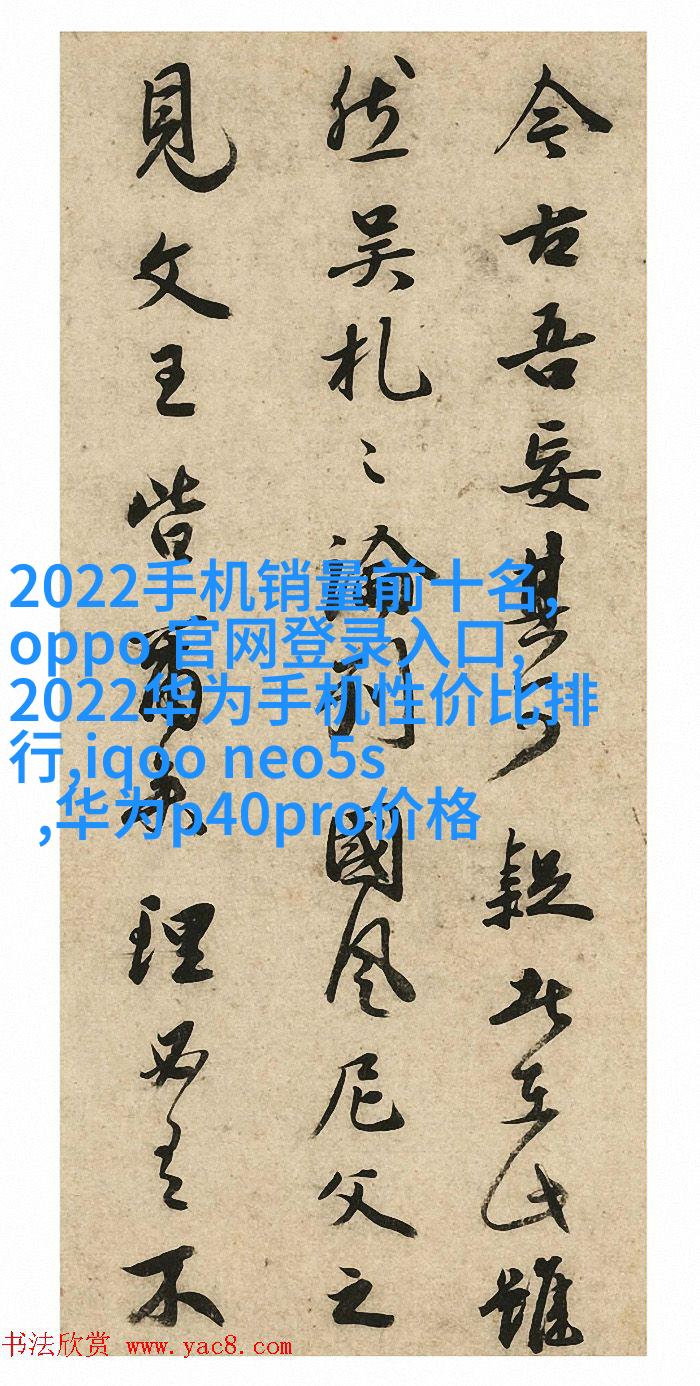 今古吾妄其可疑在此雖
然吴札〻論列國風尼父之
見文王皆理不
2022手机销量前十名,
oppo 官网登录入口,
2022华为手机性价比排
行,iqoo neo5s
,华为p40pro价格
书法欣赏 www.yac8.com